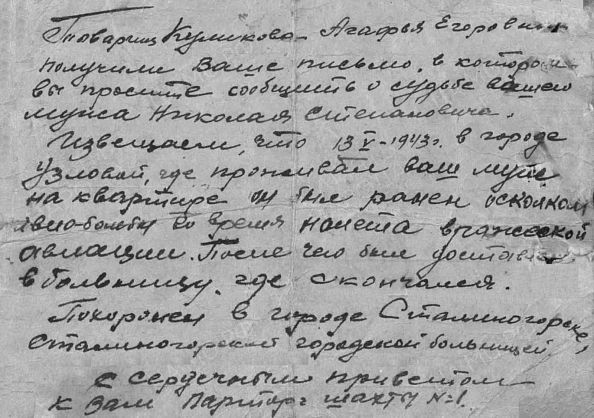 Товарищ Куликова Агафья Егоровна
получили Ваше письмо, в котором
вы просите сообщить о судьбе вашего
мужа Николая Степановича.
Извещаем, что 13 V-1943г. в городе
Узловой, где проживал ваш муж
на квартире он был ранен осколком
авио-бомбы во время налета вражеской
авиации. После чего был доставлен
в больницу, где скончался.
Похоронен в городе Сталиногорске,
Сталиногорской городской больницей.
С сердечным приветом
к Вам Парторг шахты №1.